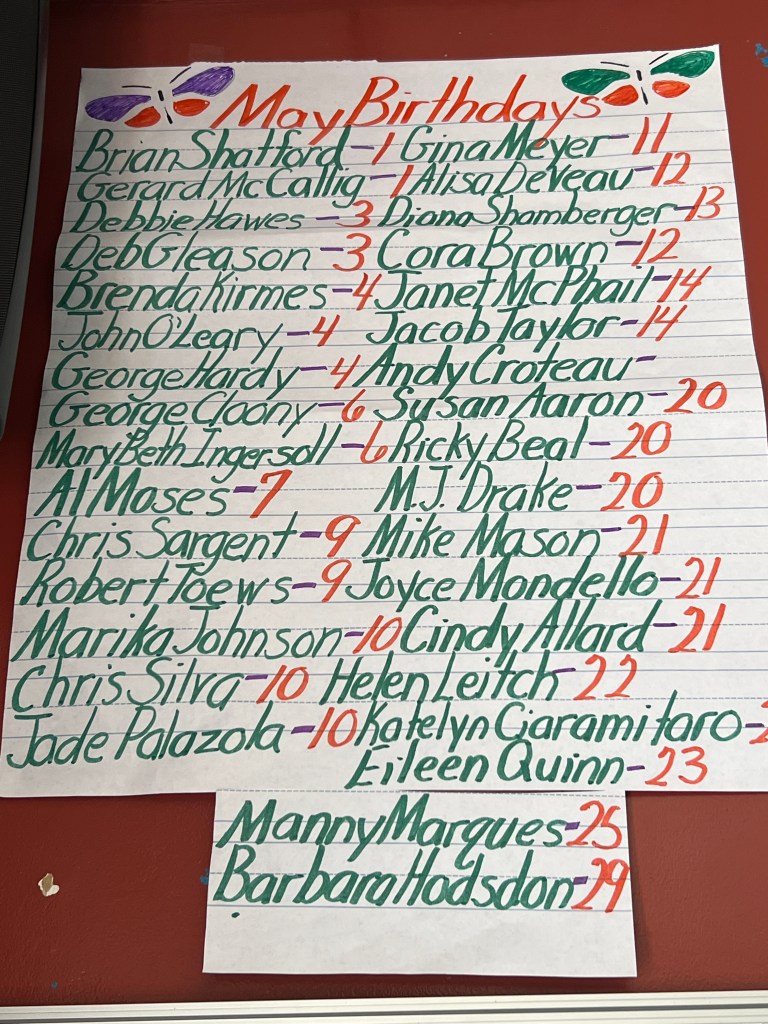 May Birthdays
Brian Shatford - 1 Gina Meyer - 11
Gerard McCallig - 1 Alisa DeVeau - 12
Debbie Hawes - 3 Diana Shamberger - 13
Deb Gleason - 3 Cora Brown - 12
Brenda Kirmes - 4 Janet McPhail - 14
John O'Leary - 4 Jacob Taylor - 14
George Hardy - 4 Andy Croteau -
George Cloony - 6 Susan Aaron - 20
Mary Beth Ingersoll - 6 Ricky Beal - 20
Al Moses - 7 M.J. Drake - 20
Chris Sargent - 9 Mike Mason - 21
Robert Toews - 9 Joyce Mondello - 21
Marika Johnson - 10 Cindy Allard - 21
Chris Silva - 10 Helen Leitch - 22
Jade Palazola - 10 Katelyn Ciaramitaro -
Eileen Quinn - 23
Manny Marques - 25
Barbara Hodsdon - 29